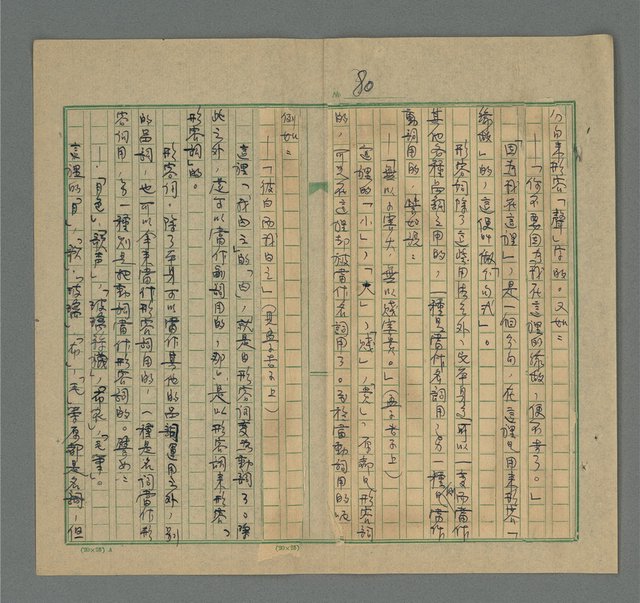 80
分句來形容「聲」字的。又如：
—「你不要因為我在這裡的緣故，便不去了。」
「因為我在這裡」，是一個分句，在這裡是用來形容「
緣故」的，這便叫做分句式」。
形容詞除了這些用法之外，它本身可以一變而當作
其他各種品詞之用的，一種是當作名詞用，另一種是當作
動詞用的，譬如說：
—「無以小害大，無以賤害貴。」(孟子告子上)
這裡的「小」，「大」，「賤」，「貴」，原都是形容詞
的，可是在這裡却被當作名詞用了。至於當動詞用的呢
例如：
—「彼白而我白之」(見孟子告子上)
這裡「我白之」的「白」，就是由形容詞變為動詞了。除
此之外，是可以當作副詞用的，那是以形容詞來形容
形容詞」的。
形容詞。除了本身可以當作其他的品詞運用之外，別
的品詞，也可以拿來當作形容詞用的，一種是名詞當作形
容詞用，另一種則是把動詞當作形容詞的。譬如：
—，「月色」，「歌声」，「玻璃
，「布衣」，「毛筆」。
這裡的「月」，「歌」，「玻璃」，「布」，「毛」等原都是名詞，但
(20×25) A
(20×25)